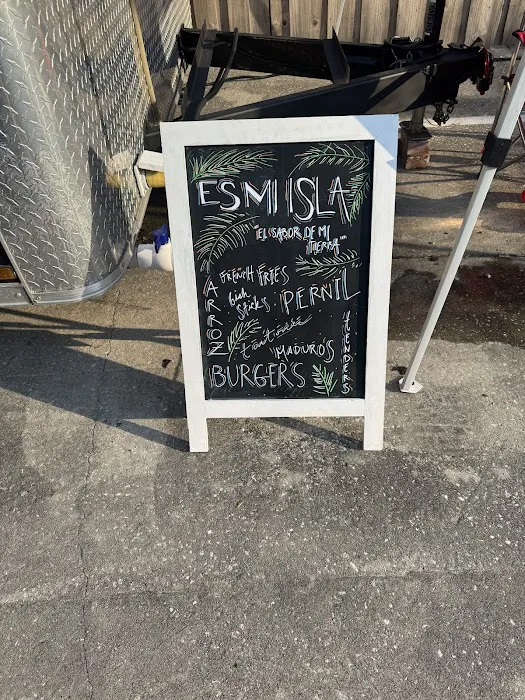 ES MI ISLA
"EL SABOR DE MI
TIERRA"
FRENCH FRIES
ARROZ
Fish
sticks
PERNIL
tostones
"MADUROS
TENDERS
BURGERS